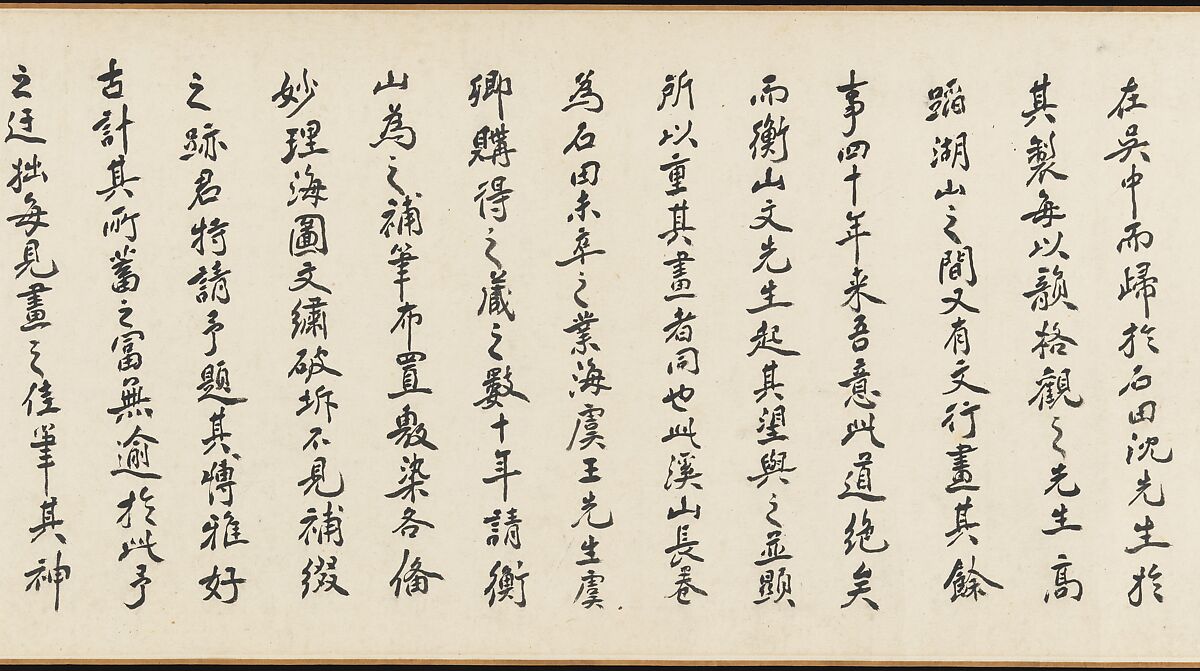 在吳中而歸於石田沈先生於
其製每以韻格觀之先生高
蹈湖山之間又有文行畫其餘
事四十年来吾意此道絶矣
而衡山文先生起其望與之並顯
所以重其畫者同也此溪山長卷
為石田未卒之業海虞王先生虞
卿購得之藏之數十年請衡
山為之補筆布置敷染各備
妙理海圖文繡破坼不見補綴
之跡君特請予題其博雅好
古計其所蓄之富無逾於此予
之迂拙每見畫之佳筆其神